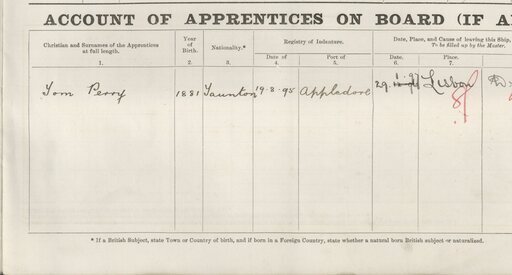 ACCOUNT OF APPRENTICES ON BOARD (IF A
Christian and Surnames of the Apprentices at full length.
Year of Birth.
Nationality.*
Registry of Indenture.
Date, Place, and Cause of leaving this Ship,
To be filled up by the Master.
Date of
Port of
Date.
Place.
1. 2. 3. 4. 5. 6. 7.
Tom Perry 1881 Taunton 19.8.95 Appledore 29. 97 Lisbon
* If a British Subject, state Town or Country of birth, and if born in a Foreign Country, state whether a natural born British subject or naturalized.